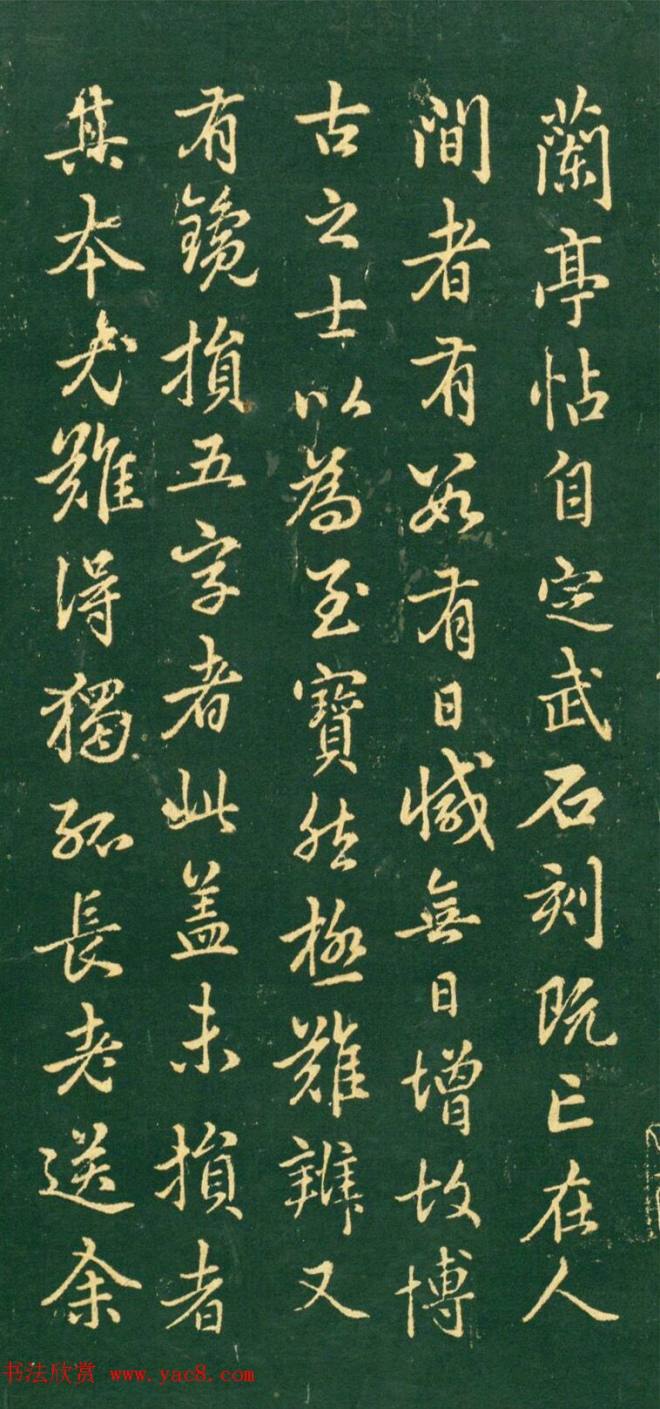 蘭亭帖自定武石刻既亡在人
間者有数有日减無日增故博
古之士以為至寶然極難辨又
有鑱損五字者此盖未損者
其本尤難得獨孤長老送余
书法欣赏 www.yac8.com